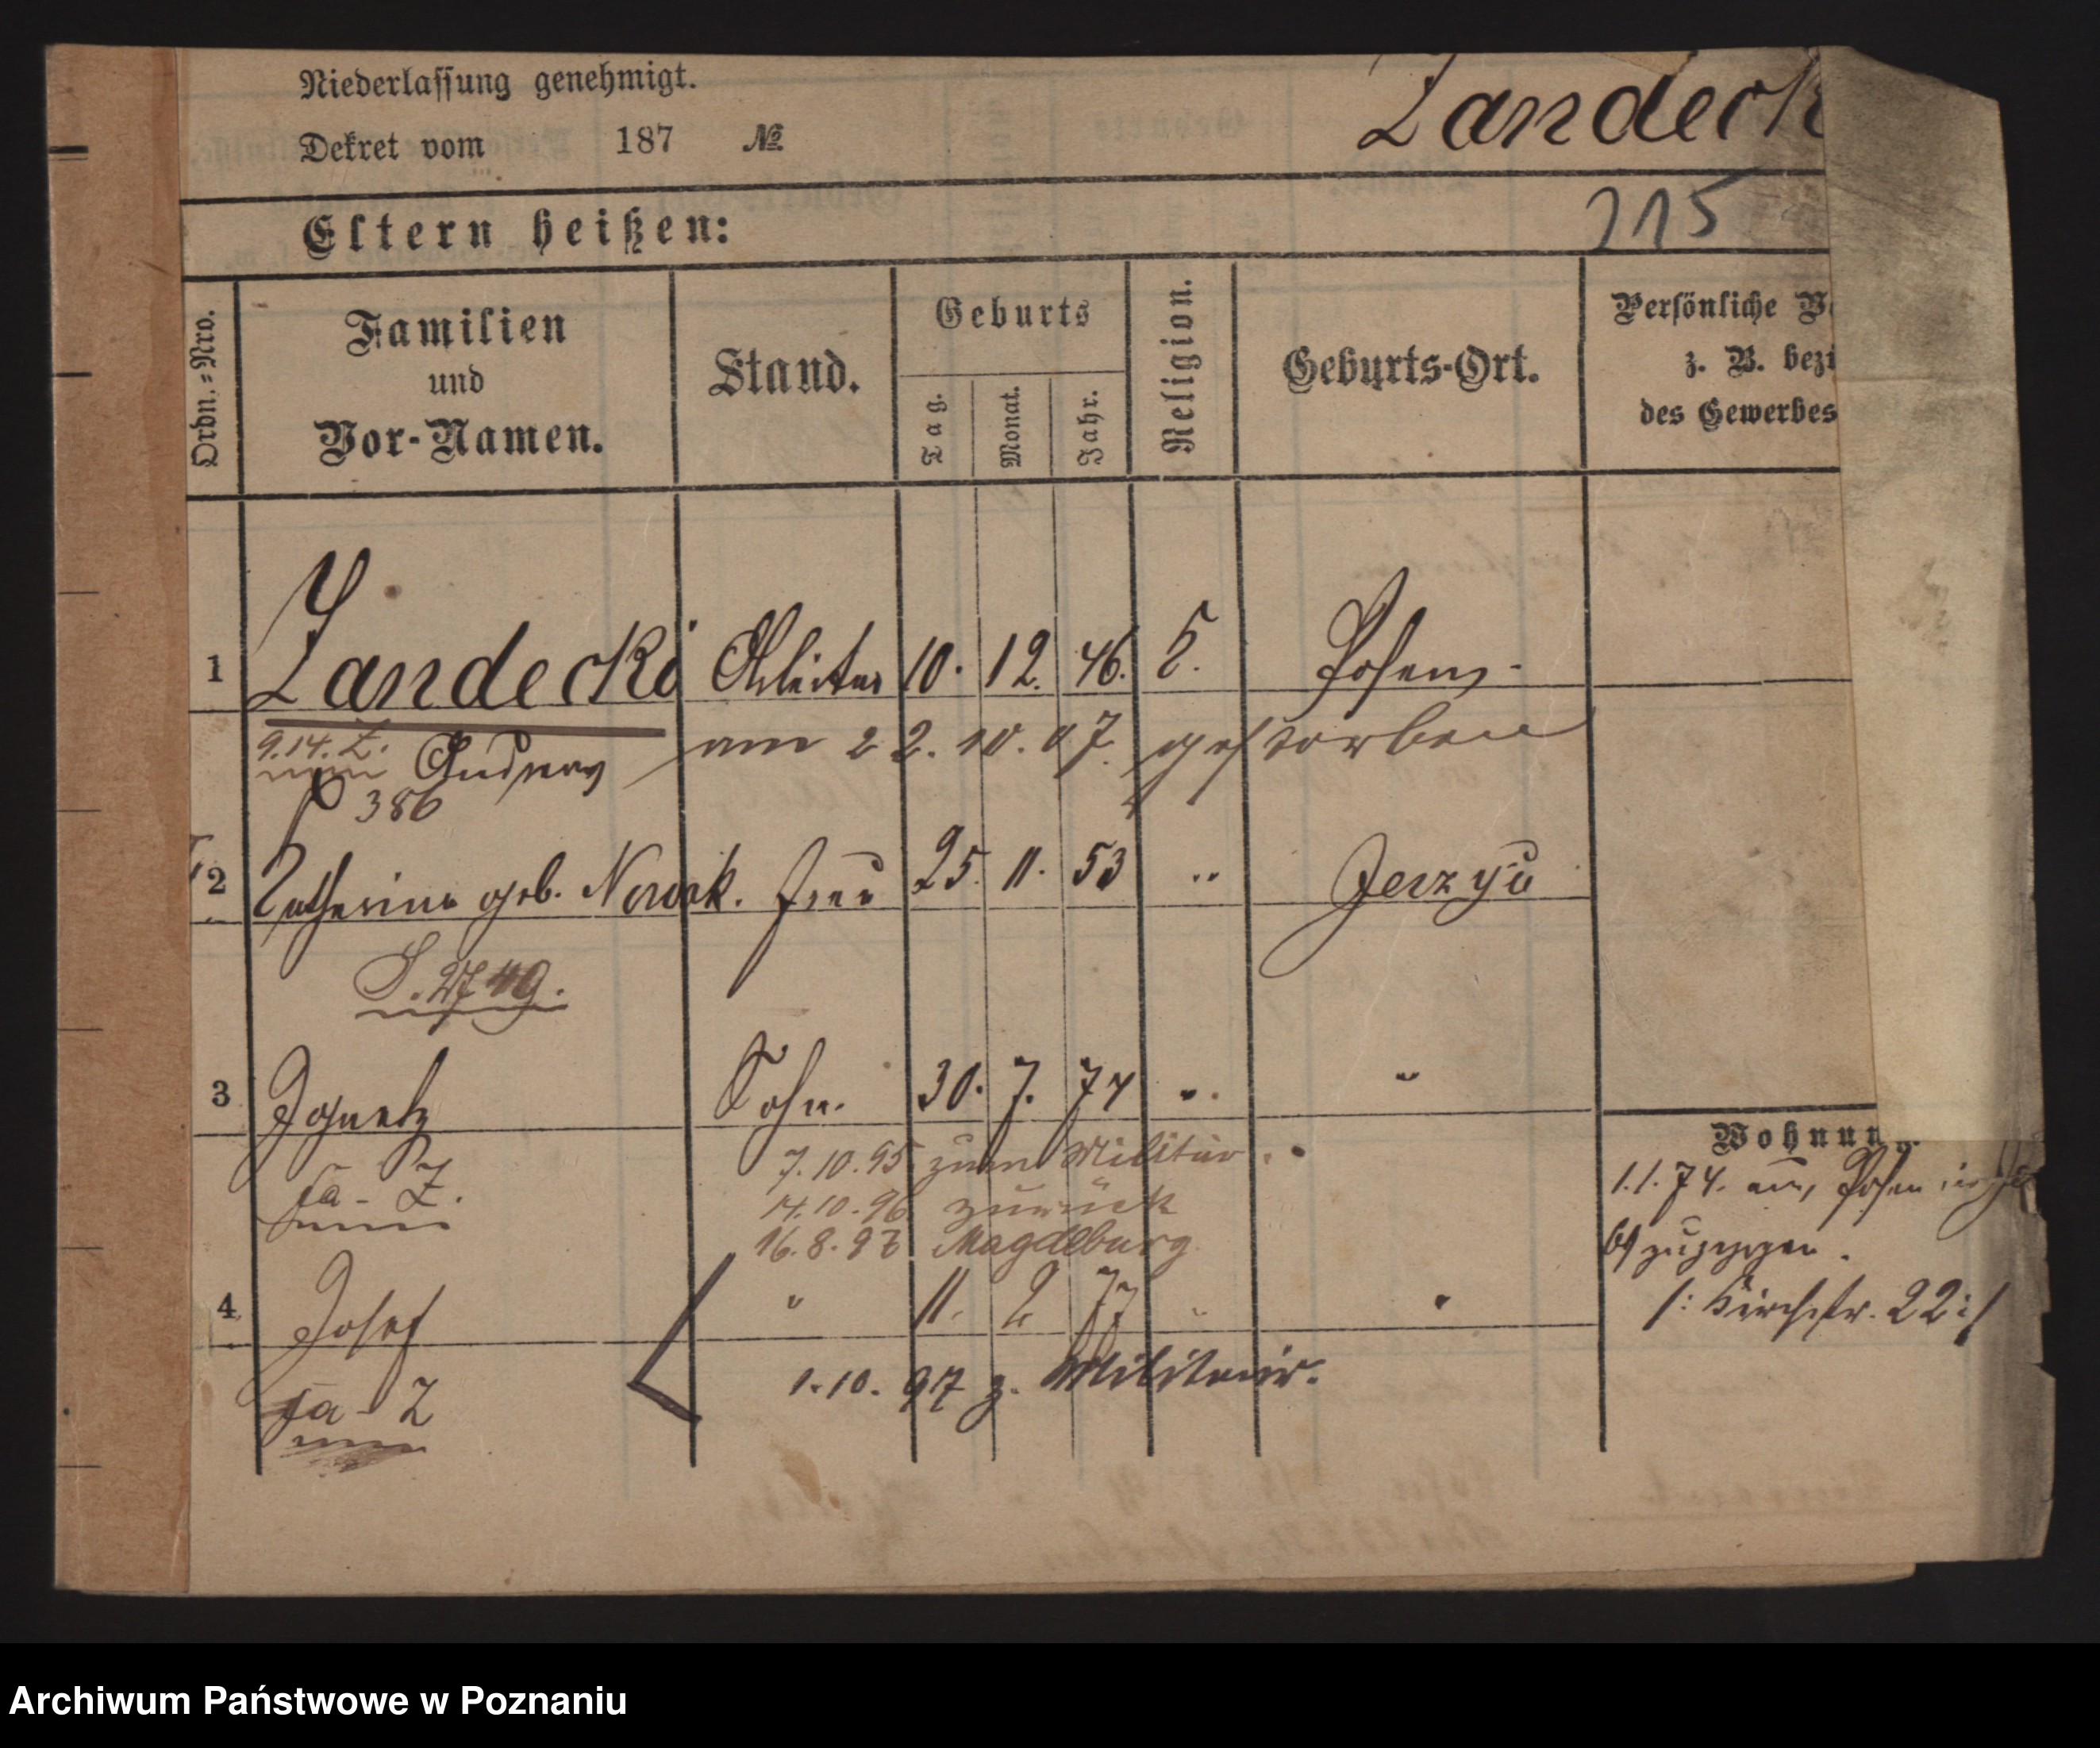 Niederlassung genehmigt.
Dekret vom 187 №
Zandeck
215
Eltern heißen:
Ordn.-Nro.
Familien
und
Vor-Namen.
Stand.
Geburts
Tag.
Monat.
Jahr.
Religion.
Geburts-Ort.
Persönliche
z. B. bezi
des Gewerbes
1 Zandecki Arbeiter 10. 12. 46. Posen.
9.14. Z. Andreas am 22. 10. 07. gestorben
386
2 Catharina geb. Nowak. Frau 25. 11. 53 " Jerzyc
3 Ignatz Sohn. 30. 7. 74 " "
7. 10. 95 zum Militär.
14. 10. 96 zurück
16. 8. 97 Magdeburg
Wohnung.
1.1.74. aus Posen in
zugezogen.
/: Kirchstr. 22 :/
4 Josef " 11. 2 77 " "
1. 10. 97 z. Militair.
Archiwum Państwowe w Poznaniu